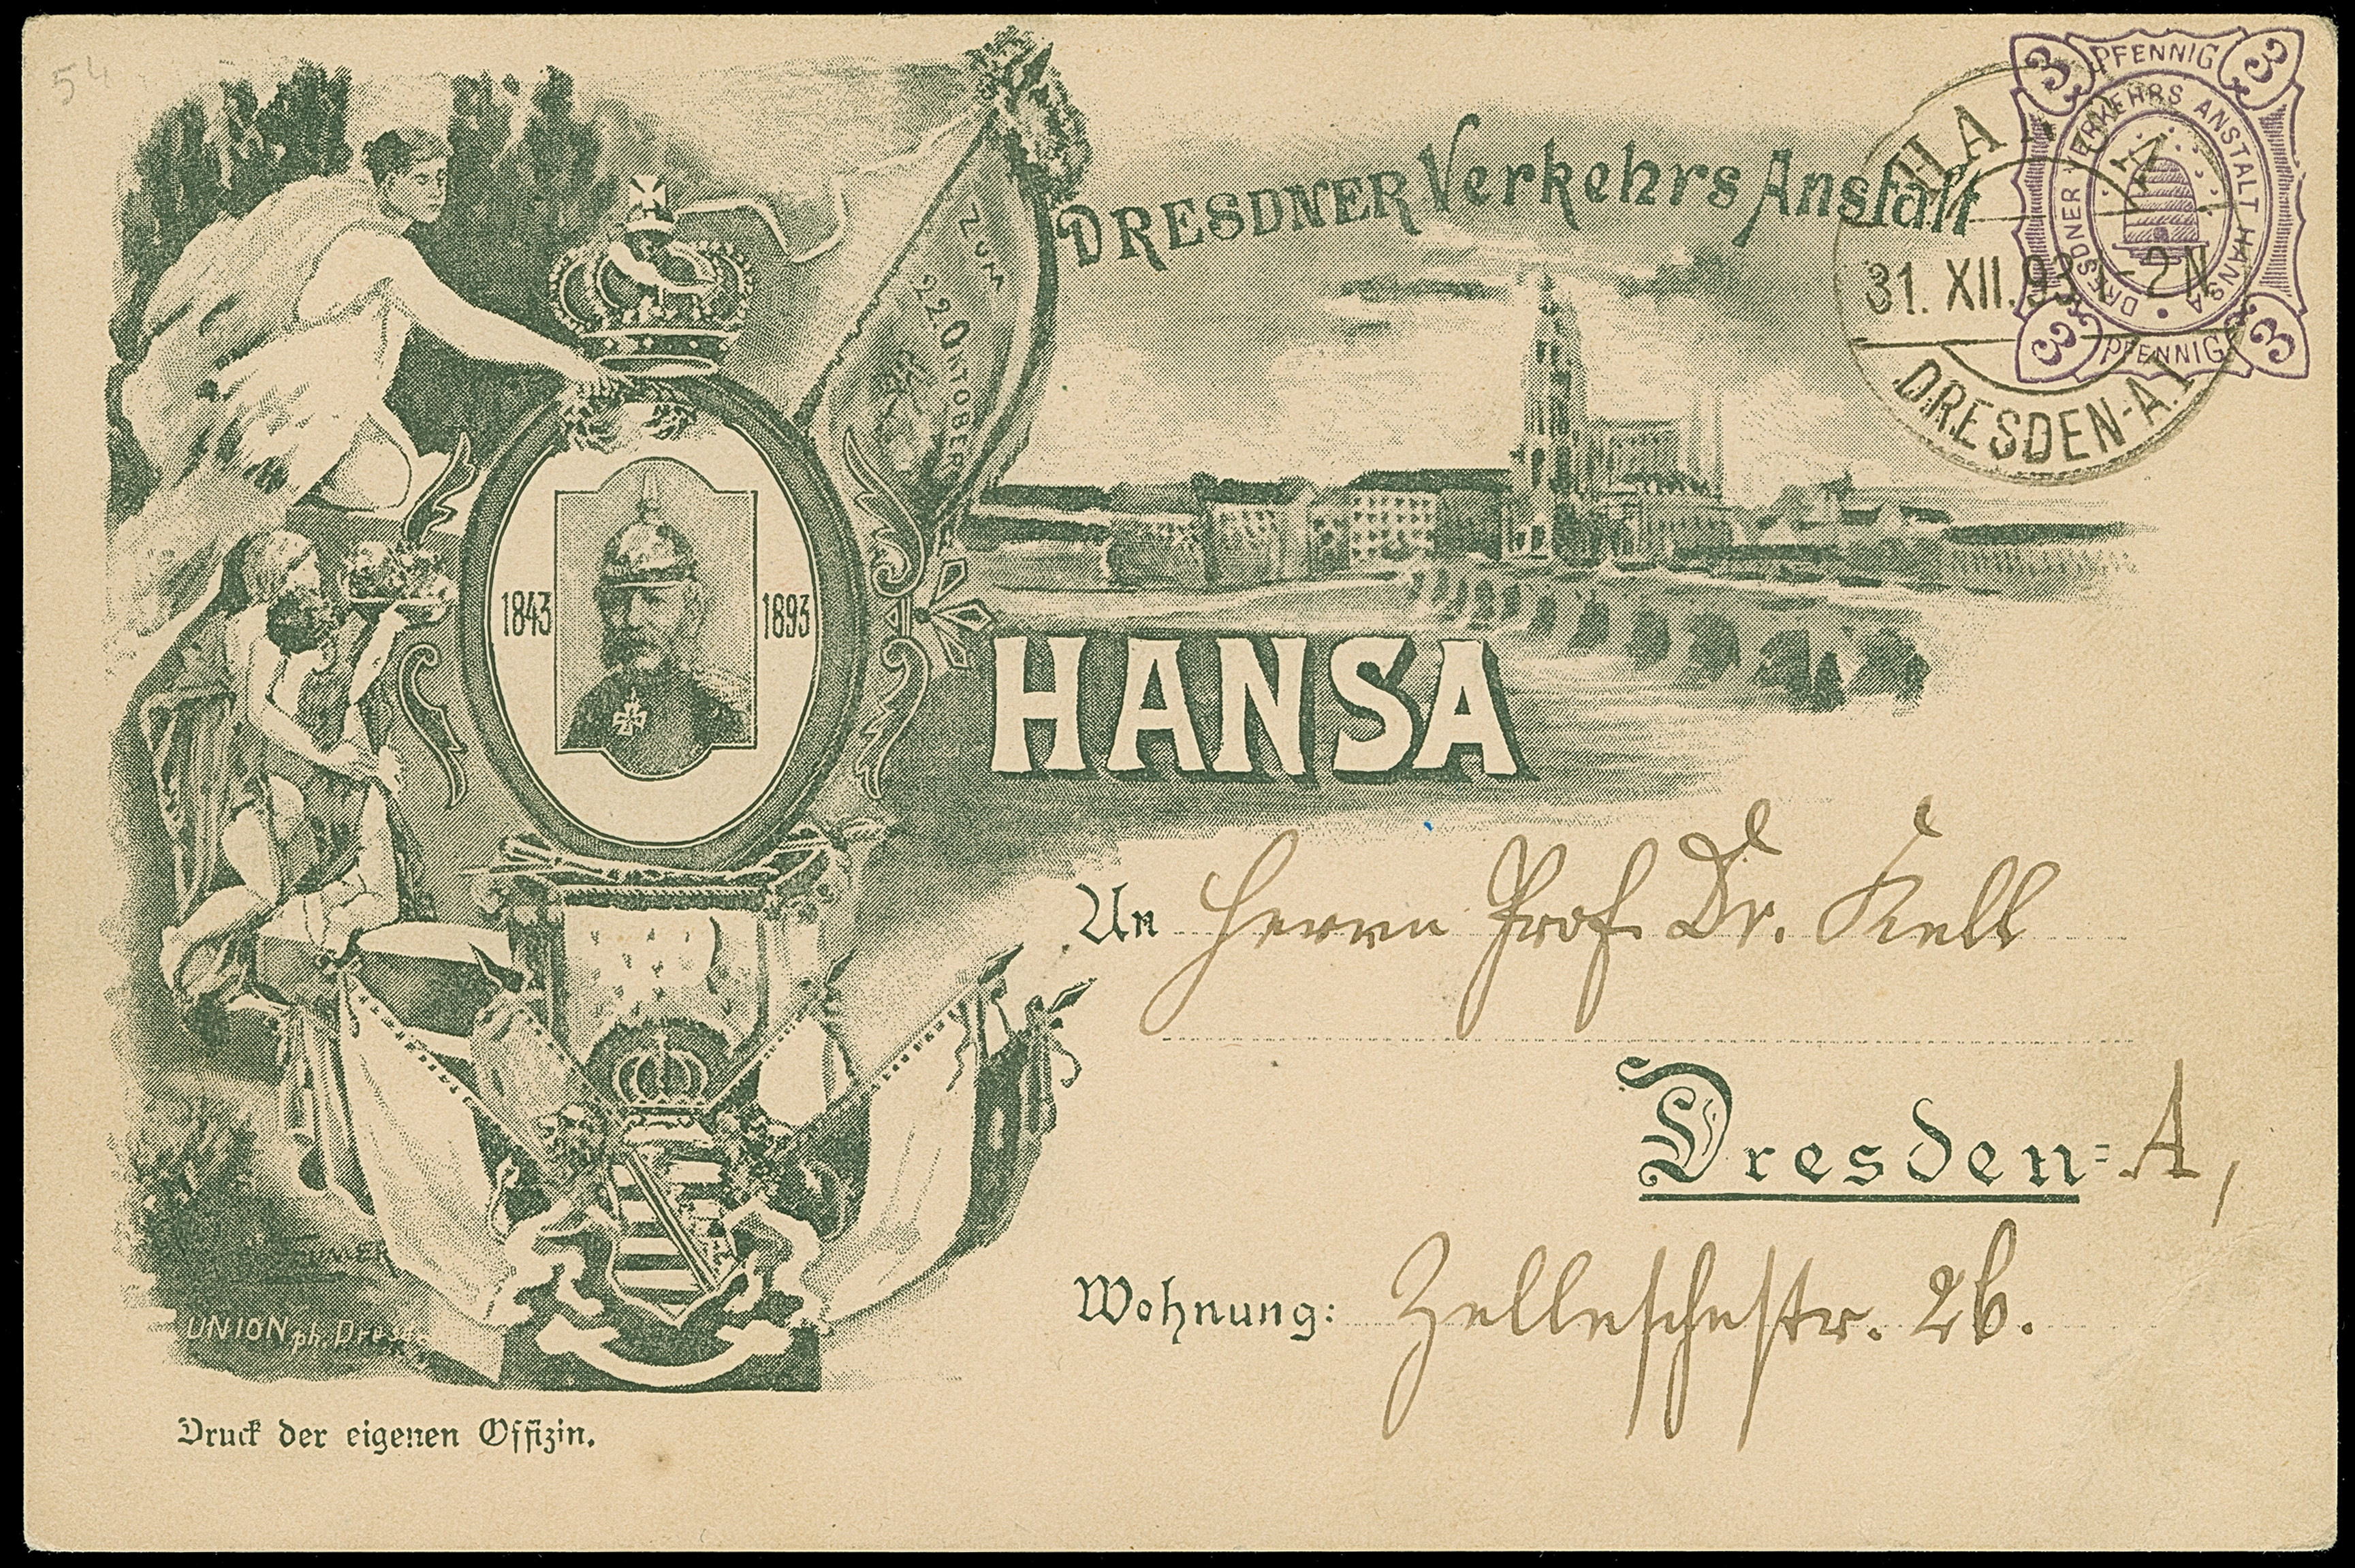 54
3 PFENNIG 3
DRESDNER VERKEHRS ANSTALT HANSA
3 PFENNIG 3
HANSA
31. XII. 93 1-2N
DRESDEN-A.1
DRESDNER Verkehrs Anstalt
ZUM
22 OKTOBER
1843 1893
HANSA
An Herrn Prof. Dr. Kell
Dresden=A,
Wohnung: Zelleschestr. 26.
UNION ph. Dresd
Druck der eigenen Offizin.